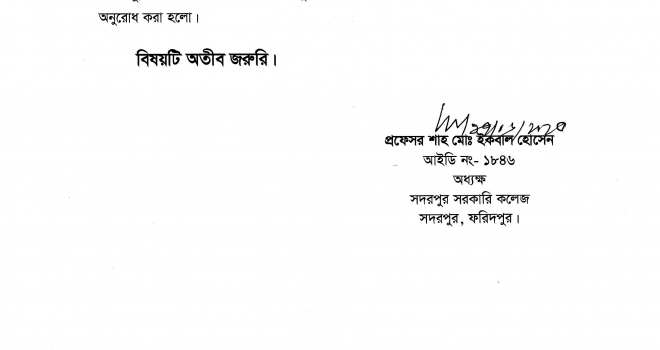 অনুরোধ করা হলো।
বিষয়টি অতীব জরুরি।
প্রফেসর শাহ মোঃ ইকবাল হোসেন
আইডি নং- ১৮৪৬
অধ্যক্ষ
সদরপুর সরকারি কলেজ
সদরপুর, ফরিদপুর।